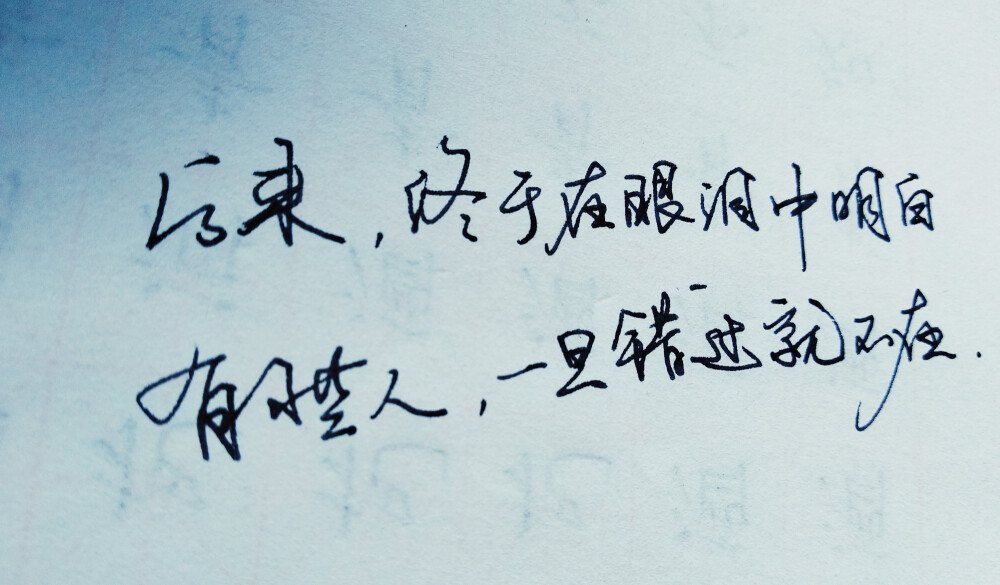 后来,终于在眼泪中明白
有些人,一旦错过就不在.